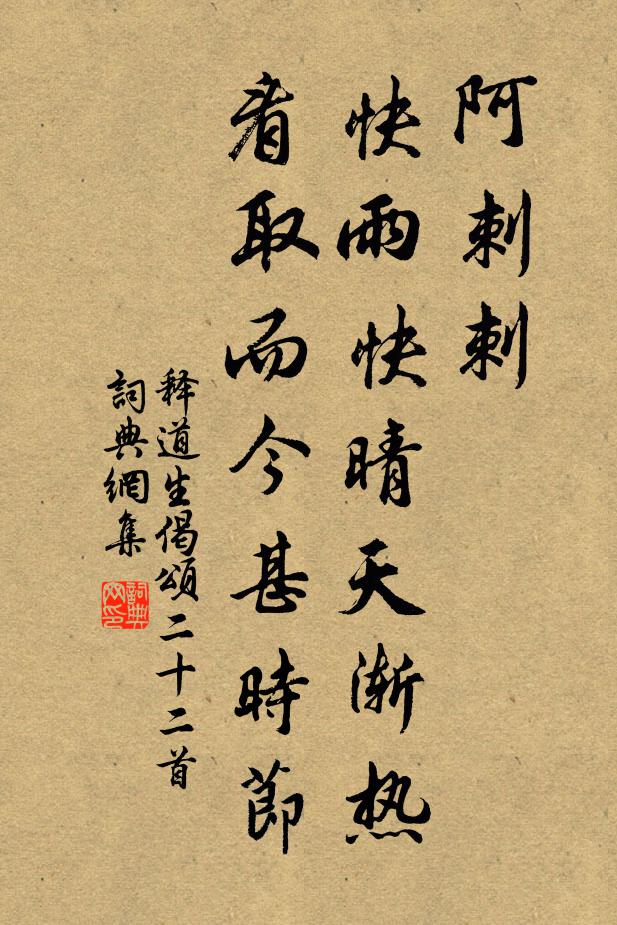 阿刺刺
快雨快晴天渐热
看取而今甚時節
释道生偈頌二十二首
詞典網集
詞典網印